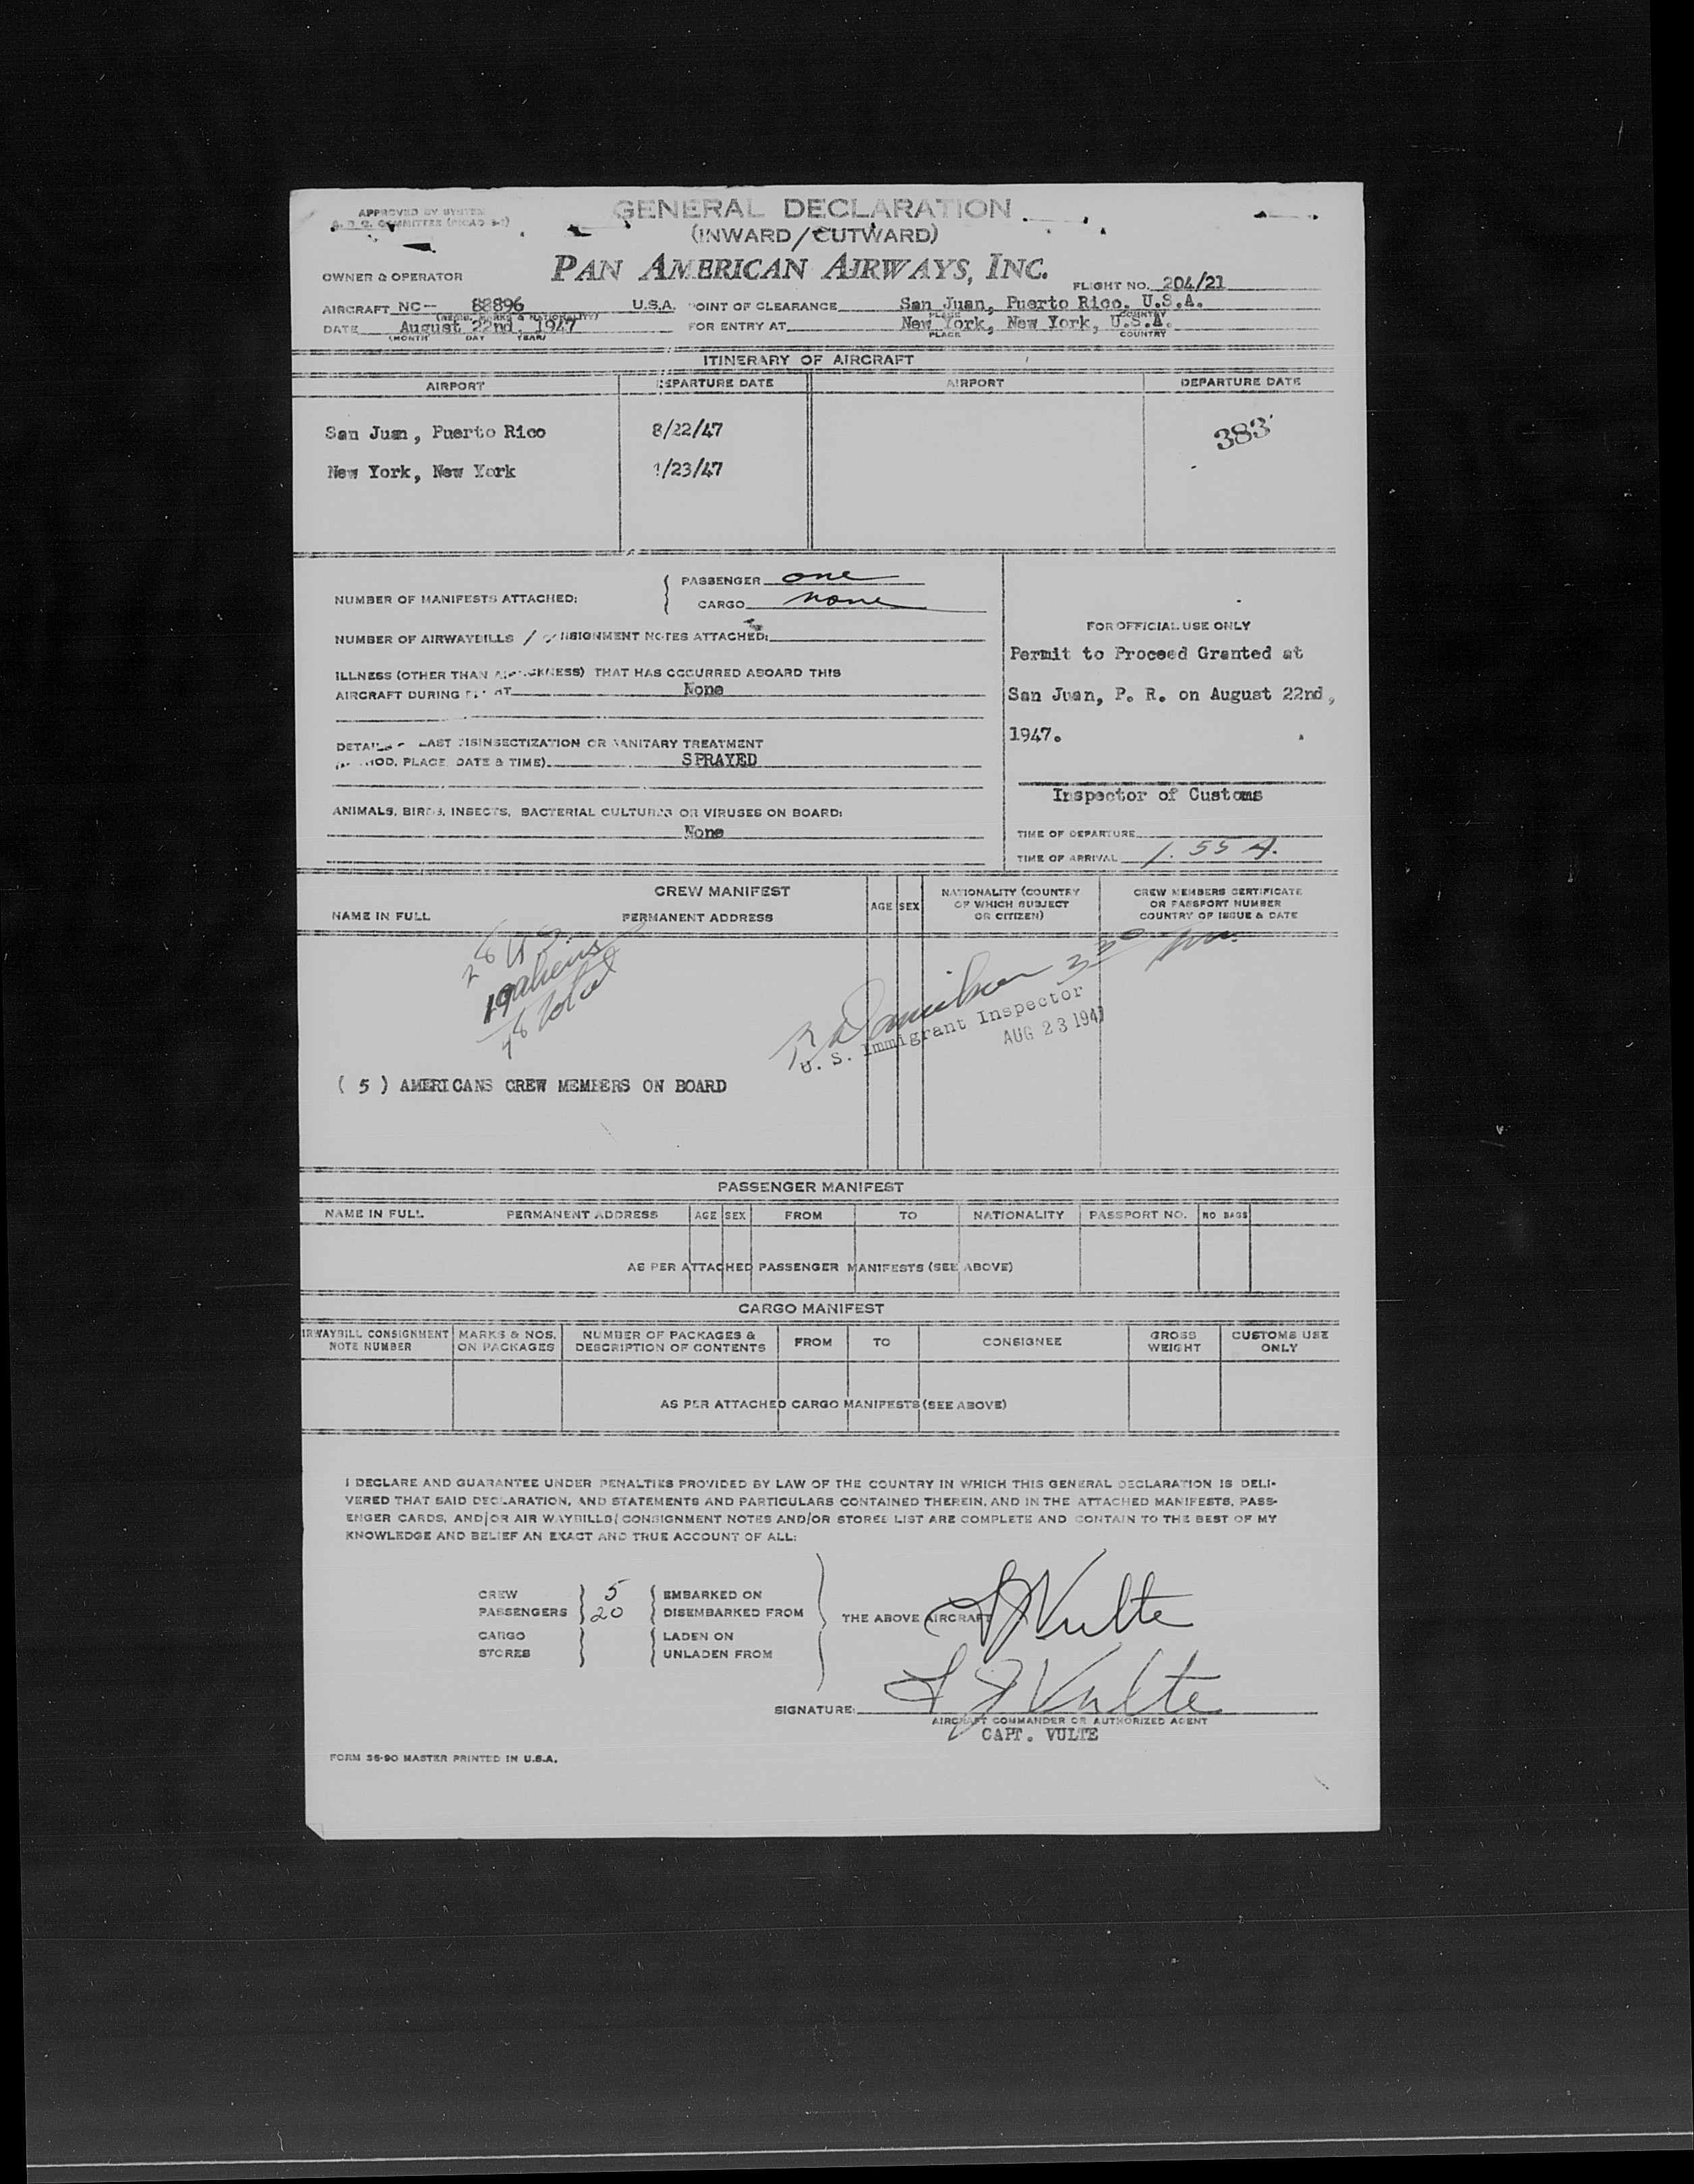 APPROVED BY SYSTEM
GENERAL DECLARATION
(INWARD/OUTWARD)
OWNER & OPERATOR PAN AMERICAN AIRWAYS, INC.
FLIGHT NO. 204/21
AIRCRAFT NC-- 88896 U.S.A. POINT OF CLEARANCE San Juan, Puerto Rico, U.S.A.
(REGIS. MARKS & NATIONALITY) PLACE COUNTRY
DATE August 22nd. 1947 FOR ENTRY AT New York, New York, U.S.A.
(MONTH DAY YEAR) PLACE COUNTRY
ITINERARY OF AIRCRAFT
AIRPORT DEPARTURE DATE AIRPORT DEPARTURE DATE
San Juan, Puerto Rico 8/22/47 383
New York, New York /23/47
NUMBER OF MANIFESTS ATTACHED: PASSENGER one
CARGO none
NUMBER OF AIRWAYBILLS / CONSIGNMENT NOTES ATTACHED:
ILLNESS (OTHER THAN AIRSICKNESS) THAT HAS OCCURRED ABOARD THIS
AIRCRAFT DURING FLIGHT None
DETAILS LAST DISINSECTIZATION OR SANITARY TREATMENT
(METHOD, PLACE, DATE & TIME) SPRAYED
ANIMALS, BIRDS, INSECTS, BACTERIAL CULTURES OR VIRUSES ON BOARD:
None
FOR OFFICIAL USE ONLY
Permit to Proceed Granted at
San Juan, P. R. on August 22nd,
1947.
Inspector of Customs
TIME OF DEPARTURE
TIME OF ARRIVAL 1.55 A.
CREW MANIFEST
NAME IN FULL PERMANENT ADDRESS AGE SEX NATIONALITY (COUNTRY OF WHICH SUBJECT OR CITIZEN) CREW MEMBERS CERTIFICATE OR PASSPORT NUMBER COUNTRY OF ISSUE & DATE
28 US
19 aliens
48 total
3 30 pm.
U. S. Immigrant Inspector
AUG 23 1947
( 5 ) AMERICANS CREW MEMBERS ON BOARD
PASSENGER MANIFEST
NAME IN FULL PERMANENT ADDRESS AGE SEX FROM TO NATIONALITY PASSPORT NO. NO BAGS
AS PER ATTACHED PASSENGER MANIFESTS (SEE ABOVE)
CARGO MANIFEST
AIRWAYBILL CONSIGNMENT NOTE NUMBER MARKS & NOS. ON PACKAGES NUMBER OF PACKAGES & DESCRIPTION OF CONTENTS FROM TO CONSIGNEE GROSS WEIGHT CUSTOMS USE ONLY
AS PER ATTACHED CARGO MANIFESTS (SEE ABOVE)
I DECLARE AND GUARANTEE UNDER PENALTIES PROVIDED BY LAW OF THE COUNTRY IN WHICH THIS GENERAL DECLARATION IS DELI-
VERED THAT SAID DECLARATION, AND STATEMENTS AND PARTICULARS CONTAINED THEREIN, AND IN THE ATTACHED MANIFESTS, PASS-
ENGER CARDS, AND/OR AIR WAYBILLS/CONSIGNMENT NOTES AND/OR STORES LIST ARE COMPLETE AND CONTAIN TO THE BEST OF MY
KNOWLEDGE AND BELIEF AN EXACT AND TRUE ACCOUNT OF ALL:
CREW 5 EMBARKED ON
PASSENGERS 20 DISEMBARKED FROM
CARGO LADEN ON
STORES UNLADEN FROM
THE ABOVE AIRCRAFT SJ Vulte
SIGNATURE: S J Vulte
AIRCRAFT COMMANDER OR AUTHORIZED AGENT
CAPT. VULTE
FORM 36-90 MASTER PRINTED IN U.S.A.